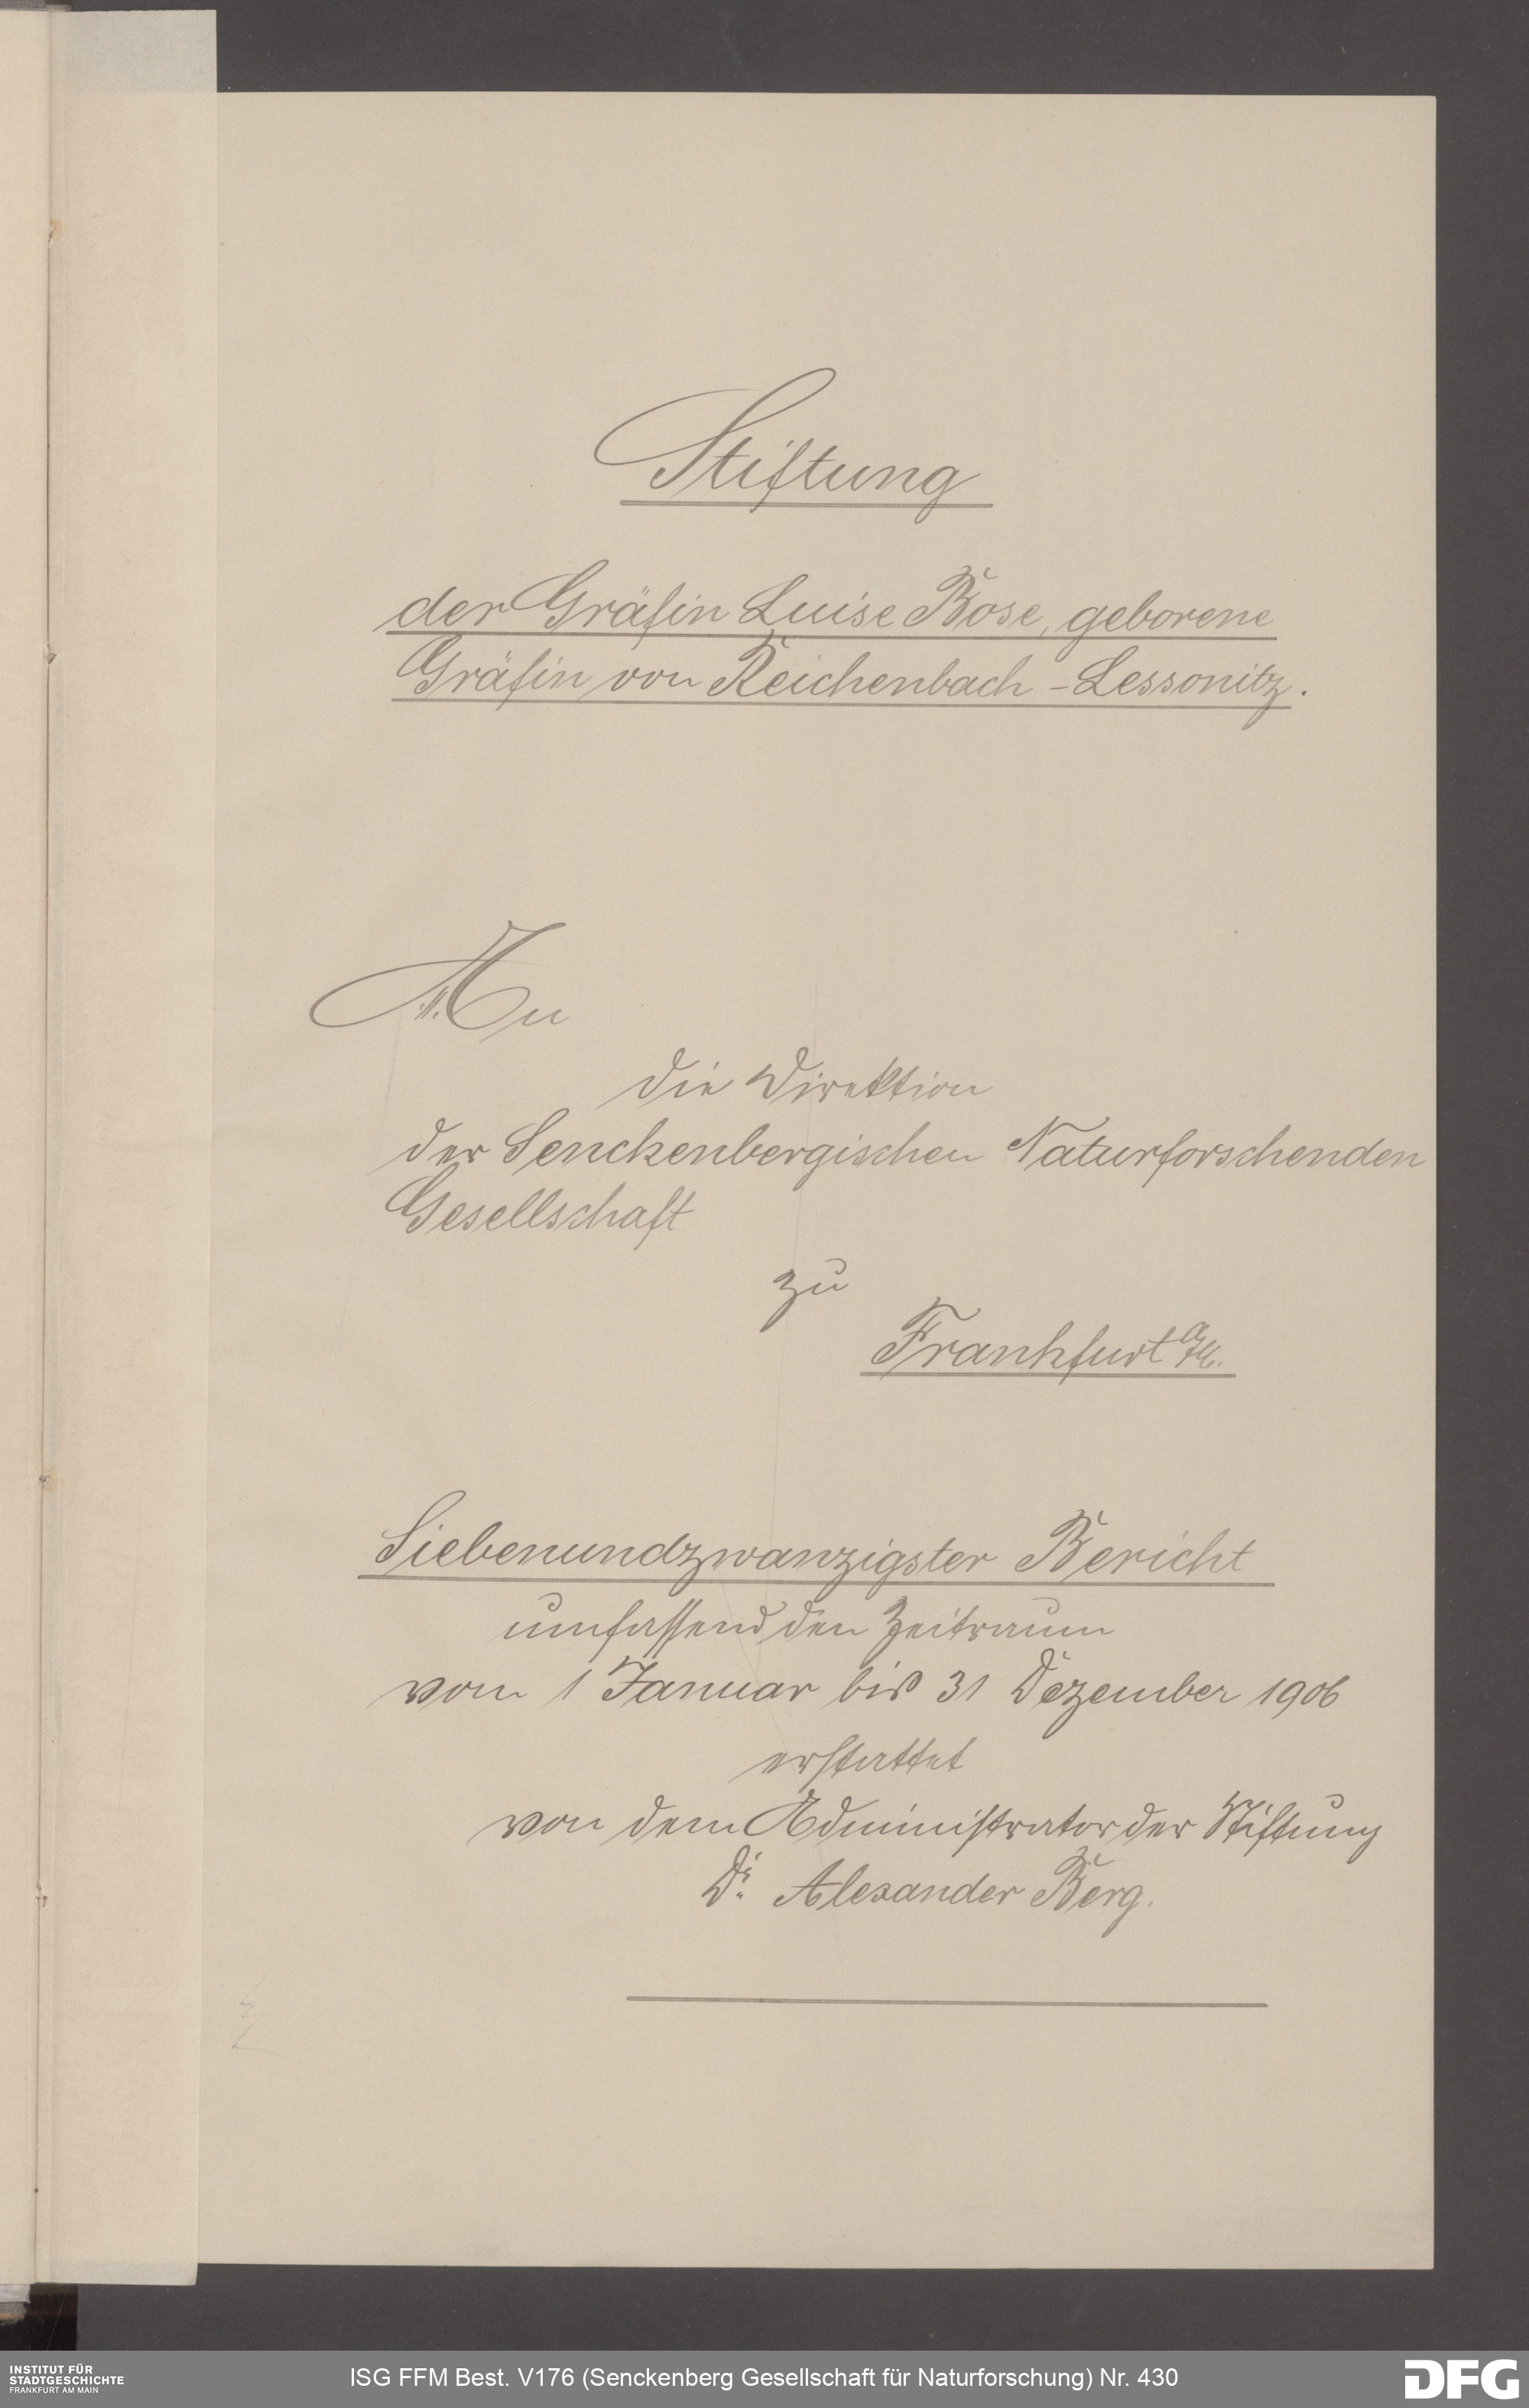 Stiftung
der Gräfin Luise Bose, geborene
Gräfin von Reichenbach - Lessonitz.
An
die Direktion
der Senckenbergischen Naturforschenden
Gesellschaft
zu
Frankfurt a/M.
Siebenundzwanzigster Bericht
umfassend den Zeitraum
vom 1 Januar bis 31 Dezember 1906
erstattet
von dem Administrator der Stiftung
Dr. Alexander Berg.
INSTITUT FÜR
STADTGESCHICHTE
FRANKFURT AM MAIN
ISG FFM Best. V176 (Senckenberg Gesellschaft für Naturforschung) Nr. 430
DFG